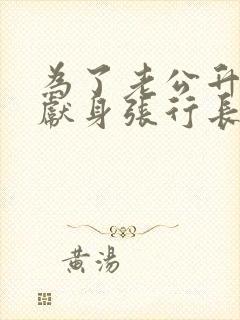 為了老公升
獻身張行長
黃湯